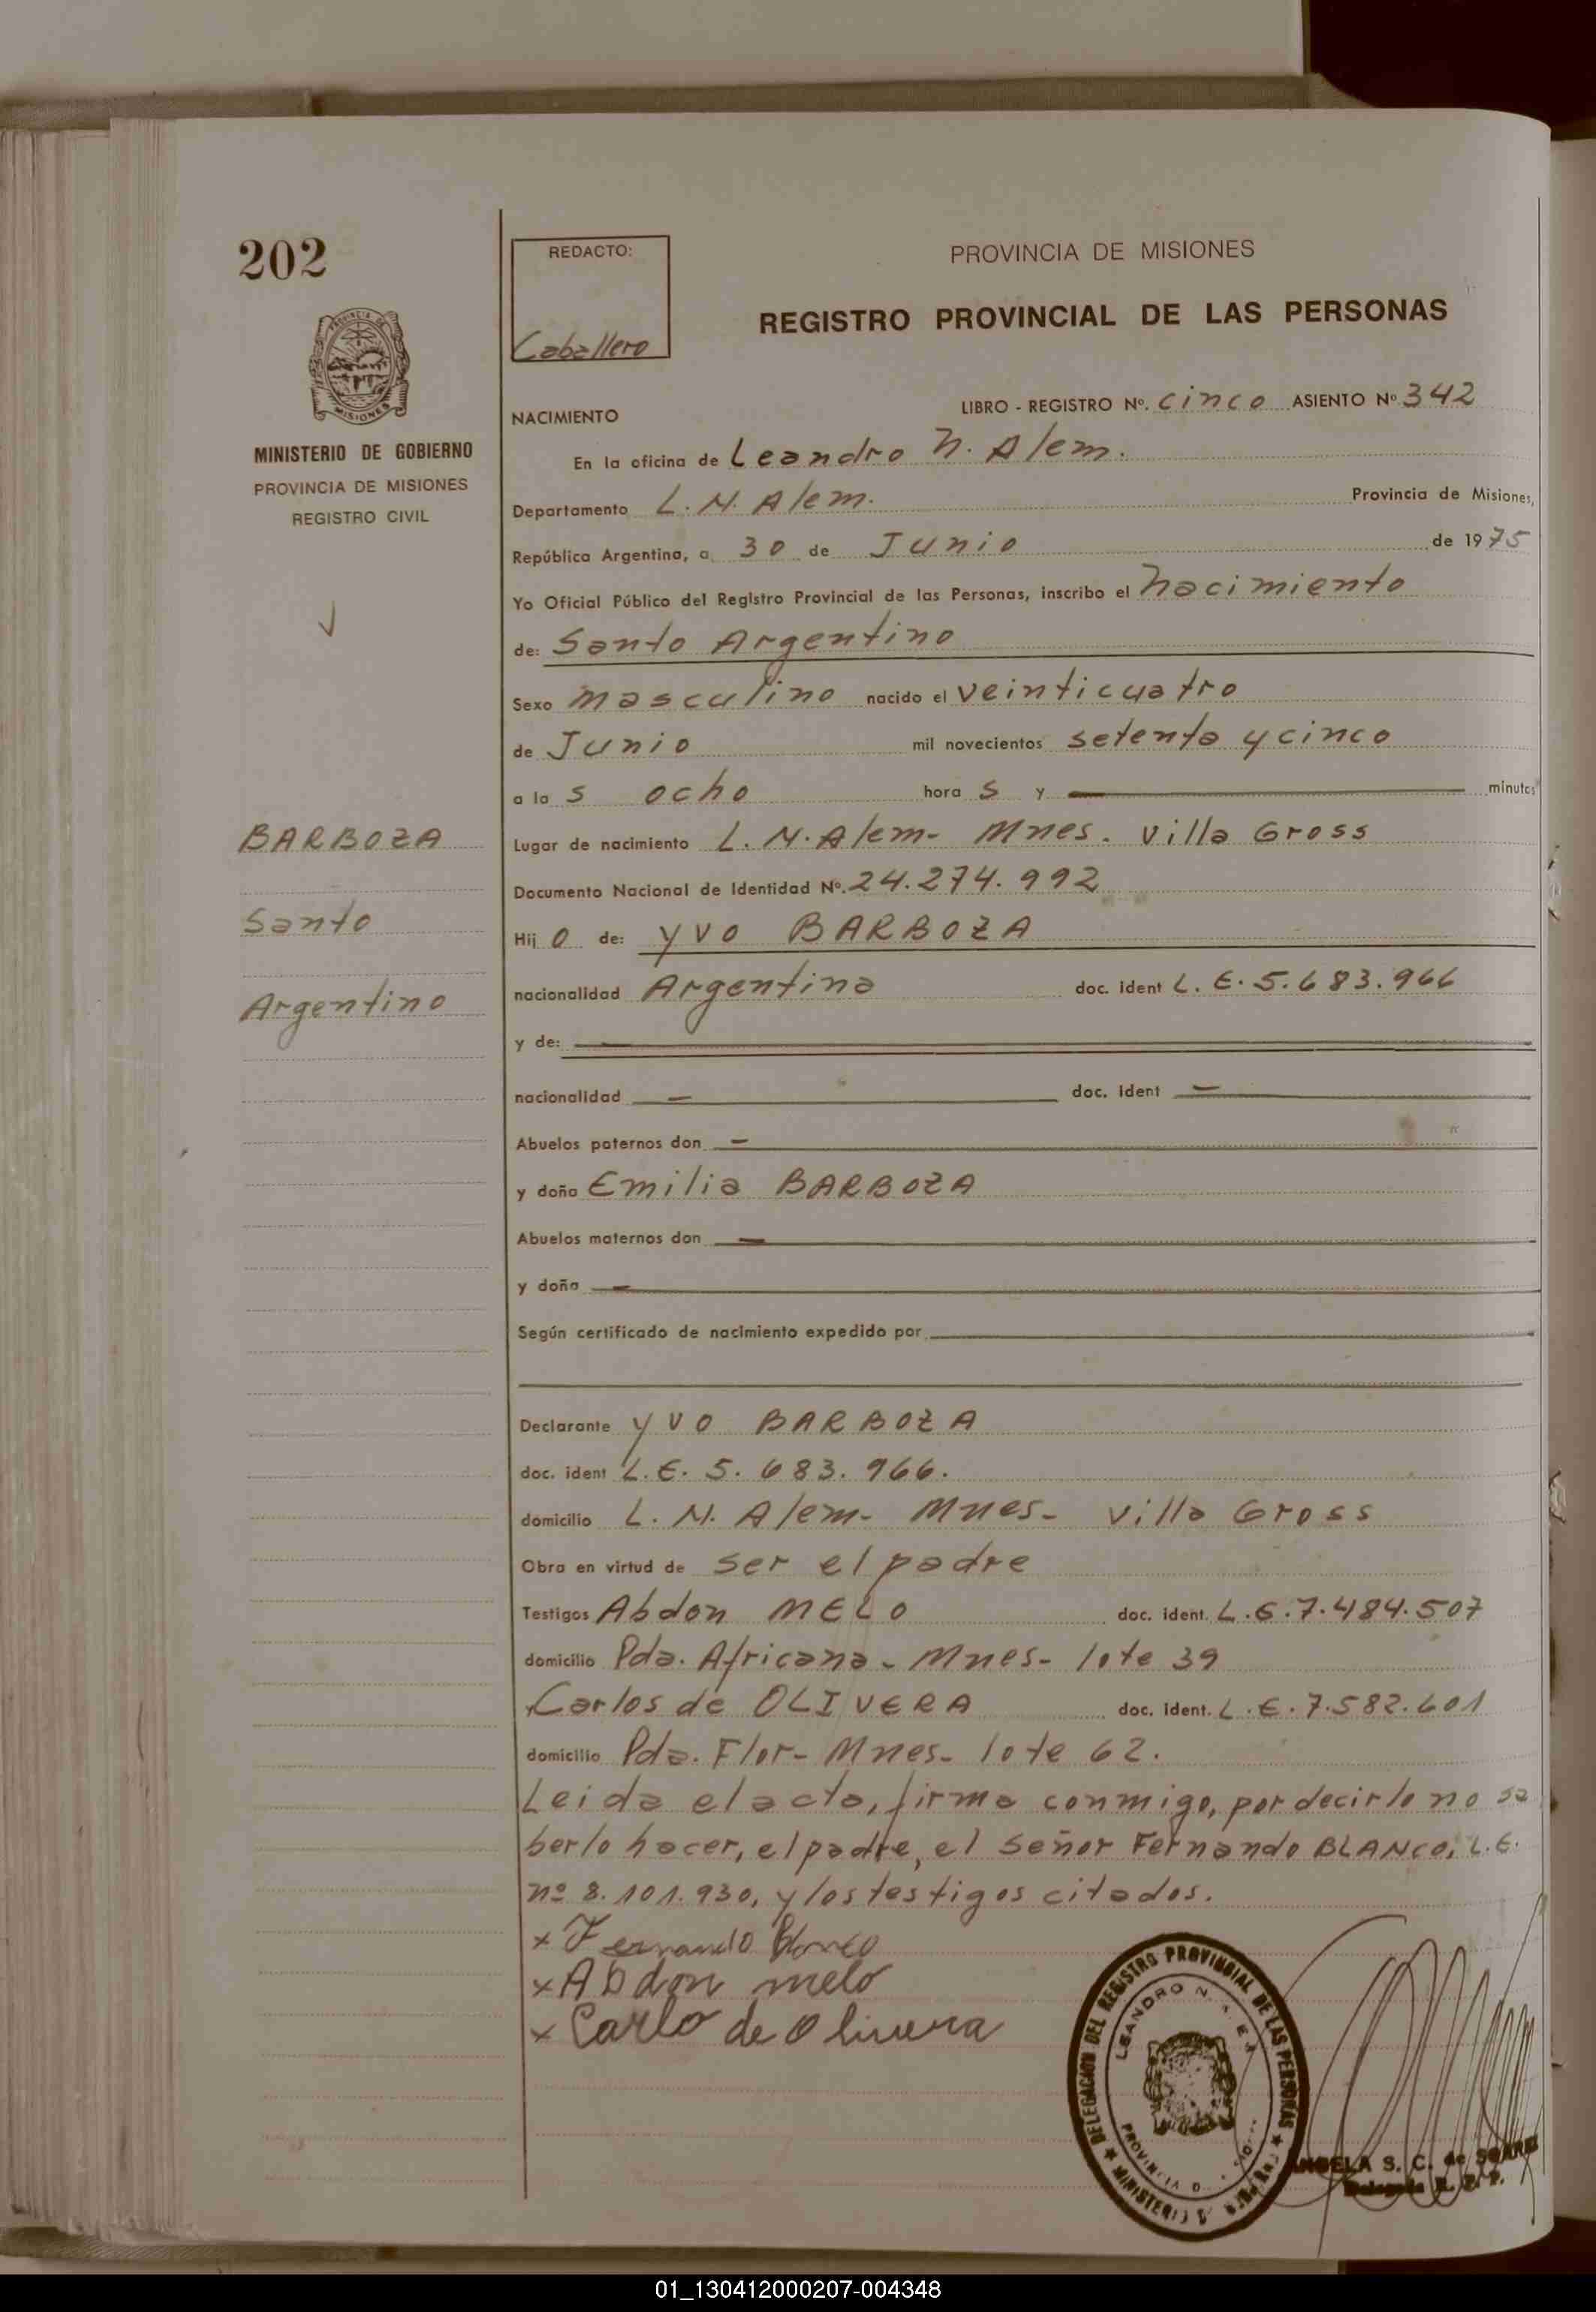 202
REDACTO:
Caballero
PROVINCIA DE MISIONES
REGISTRO PROVINCIAL DE LAS PERSONAS
MINISTERIO DE GOBIERNO
PROVINCIA DE MISIONES
REGISTRO CIVIL
NACIMIENTO
LIBRO - REGISTRO Nº. cinco ASIENTO Nº 342
En la oficina de Leandro N. Alem.
Departamento L. N. Alem. Provincia de Misiones,
República Argentina, a 30 de Junio de 1975
Yo Oficial Público del Registro Provincial de las Personas, inscribo el nacimiento
de: Santo Argentino
Sexo masculino nacido el veinticuatro
de Junio mil novecientos setenta y cinco
a la s ocho hora s y minutos
BARBOZA
Santo
Argentino
Lugar de nacimiento L. N. Alem- Mnes. Villa Gross
Documento Nacional de Identidad Nº. 24.274.992
Hij o de: YVO BARBOZA
nacionalidad Argentina doc. ident L. E. 5.683.966
y de:
nacionalidad doc. ident
Abuelos paternos don
y doña Emilia BARBOZA
Abuelos maternos don
y doña
Según certificado de nacimiento expedido por
Declarante YVO BARBOZA
doc. ident L.E. 5.683.966.
domicilio L. N. Alem- Mnes- Villa Gross
Obra en virtud de ser el padre
Testigos Abdon MELO doc. ident. L.E.7.484.507
domicilio Pda. Africana - Mnes- lote 39
Carlos de OLIVERA doc. ident. L.E.7.582.601
domicilio Pda. Flor- Mnes- lote 62.
Leida el acta, firma conmigo, por decirlo no sa
berlo hacer, el padre, el señor Fernando BLANCO, L.E.
nº 8.101.930, y los testigos citados.
x Fernando Blanco
x Abdon melo
x Carlo de Olivera
DELEGACION DEL REGISTRO PROVINCIAL DE LAS PERSONAS
LEANDRO N.
ANGELA S. C. de SUAREZ
Delegada R. P. P.
01_130412000207-004348